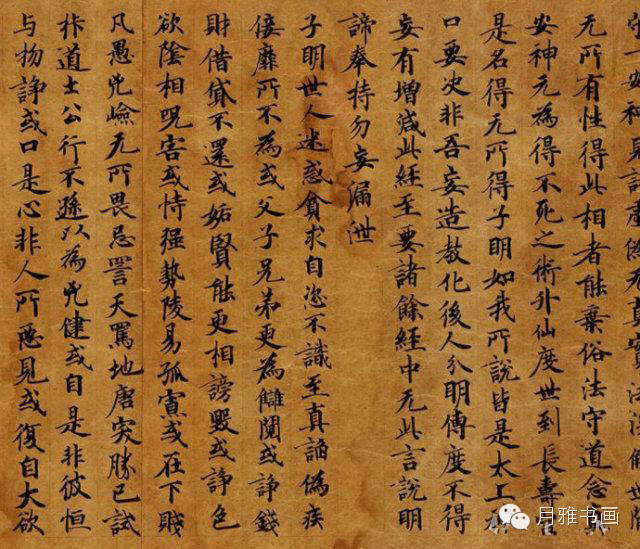 守一安神
无所有性得此相者能棄俗法守道念
安神无為得不死之術升仙度世到長壽
是名得无所得子明如我所說皆是太上
口要决非吾妄造教化後人分明傳度不得
妄有增減此經至要諸餘經中无此言說明
諦奉持勿妄漏泄
子明世人迷惑貪求自恣不識至真諂偽疾
佞靡所不為或父子兄弟更為讎鬩或諍錢
財借貸不還或妬賢能更相謗毀或諍色
欲陰相咒害或恃强勢陵易孤寡或在下賤
凡愚兇嶮无所畏忌詈天罵地唐突勝己試
道士公行不遜以為兇健或自是非彼恒
与物諍或口是心非人所惡見或復自大欲
月雅书画